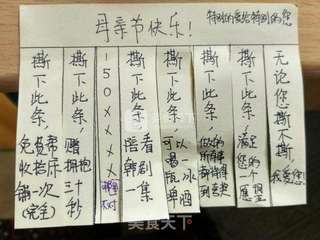 母亲节快乐!
特别的爱给特别的您
撕下此条,
免费帮
收拾
一次
(完全)
撕下此条,
赠拥抱
三十
秒
150XXXX
撕下此条,
陪看
韩剧
一集
撕下此条,
可以
喝一
瓶冰
啤酒
撕下此条,
做的
所有
撕下此条,
满足
您的
一个
愿望
无论您撕不撕,
我爱您!